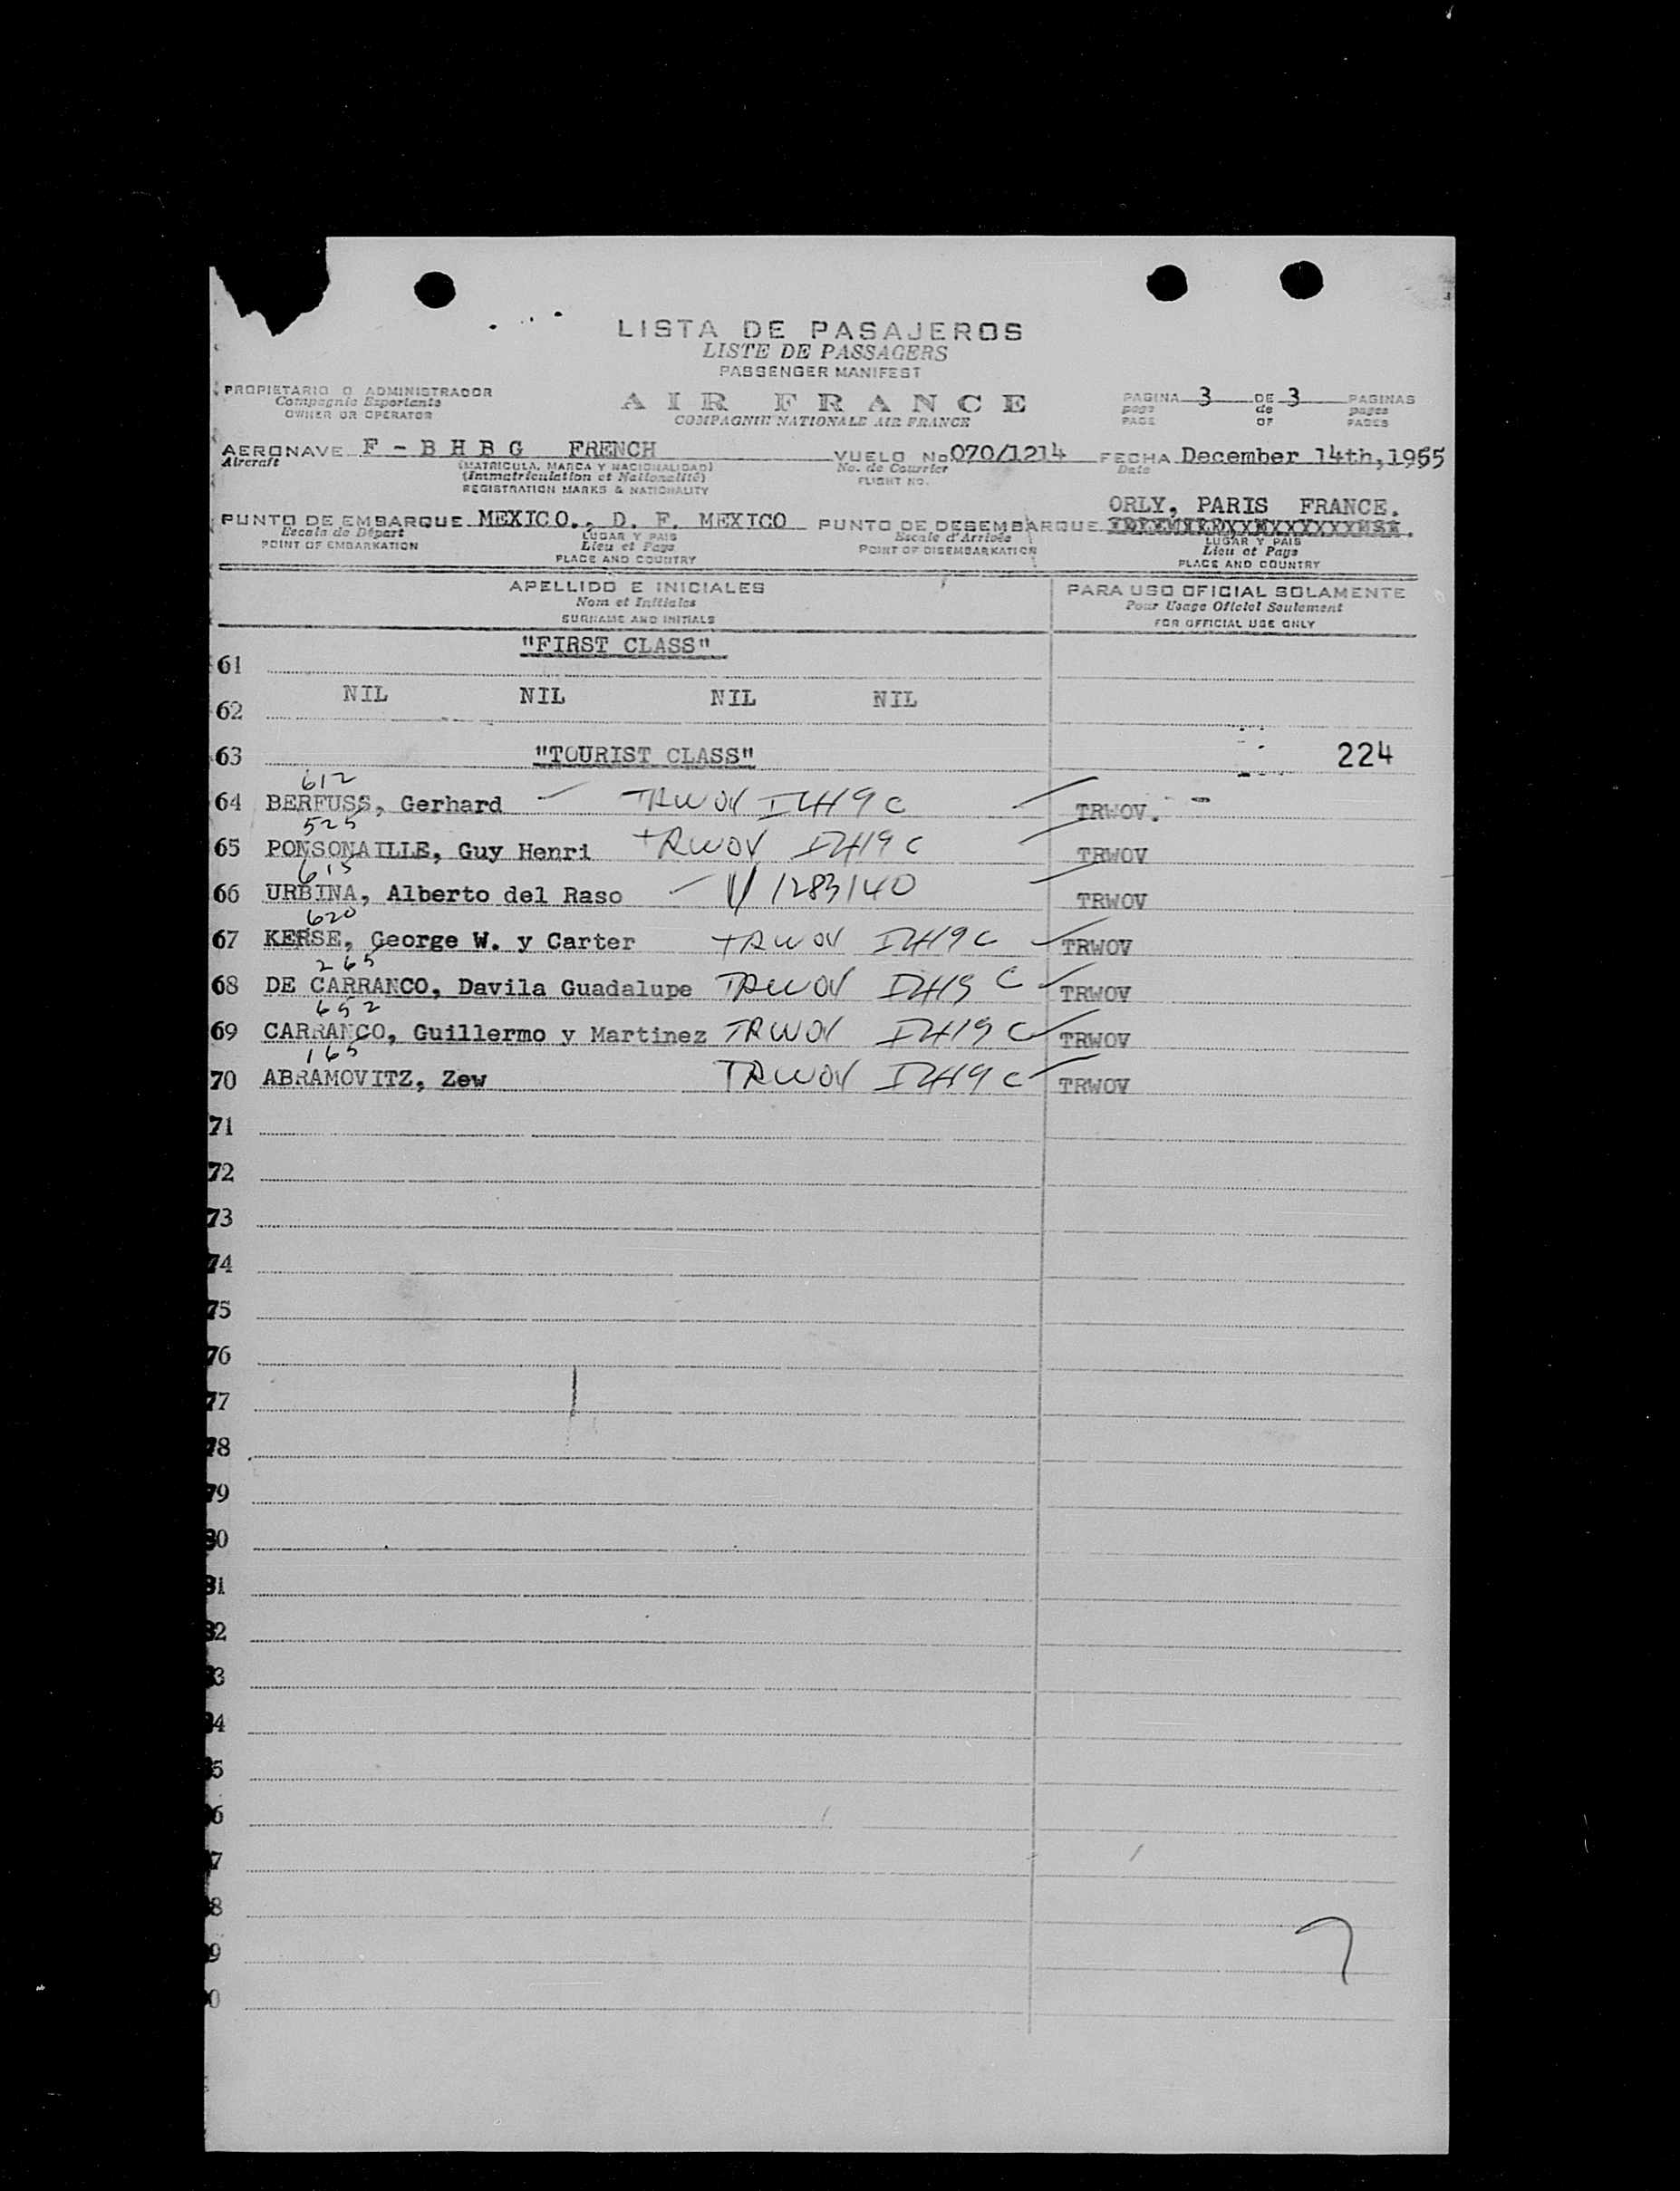 LISTA DE PASAJEROS
LISTE DE PASSAGERS
PASSENGER MANIFEST
PROPIETARIO O ADMINISTRADOR
Compagnie Exportante
OWNER OR OPERATOR
AIR FRANCE
COMPAGNIE NATIONALE AIR FRANCE
PAGINA 3 DE 3 PAGINAS
page de pages
PAGE OF PAGES
AERONAVE F - B H B G FRENCH VUELO No 070/1214 FECHA December 14th, 1955
Aircraft (MATRICULA, MARCA Y NACIONALIDAD) No. de Courrier Date
(Immatriculation et Nationalité) FLIGHT NO.
REGISTRATION MARKS & NATIONALITY
ORLY, PARIS FRANCE.
PUNTO DE EMBARQUE MEXICO., D. F. MEXICO PUNTO DE DESEMBARQUE
Escale de Départ LUGAR Y PAIS Escale d'Arrivée LUGAR Y PAIS
POINT OF EMBARKATION Lieu et Pays POINT OF DISEMBARKATION Lieu et Pays
PLACE AND COUNTRY PLACE AND COUNTRY
APELLIDO E INICIALES PARA USO OFICIAL SOLAMENTE
Nom et Initiales Pour Usage Officiel Seulement
SURNAME AND INITIALS FOR OFFICIAL USE ONLY
"FIRST CLASS"
61
NIL NIL NIL NIL
62
63 "TOURIST CLASS" 224
612
64 BERFUSS, Gerhard TRWOV I2419C TRWOV.
525
65 PONSONAILLE, Guy Henri TRWOV I2419C TRWOV
615
66 URBINA, Alberto del Raso V 1283140 TRWOV
620
67 KERSE, George W. y Carter TRWOV I2419C TRWOV
265
68 DE CARRANCO, Davila Guadalupe TRWOV I2419C TRWOV
652
69 CARRANCO, Guillermo y Martinez TRWOV I2419C TRWOV
165
70 ABRAMOVITZ, Zew TRWOV I2419C TRWOV
71
72
73
74
75
76
77
78
79
80
81
82
83
84
85
86
87
88
89
90
7